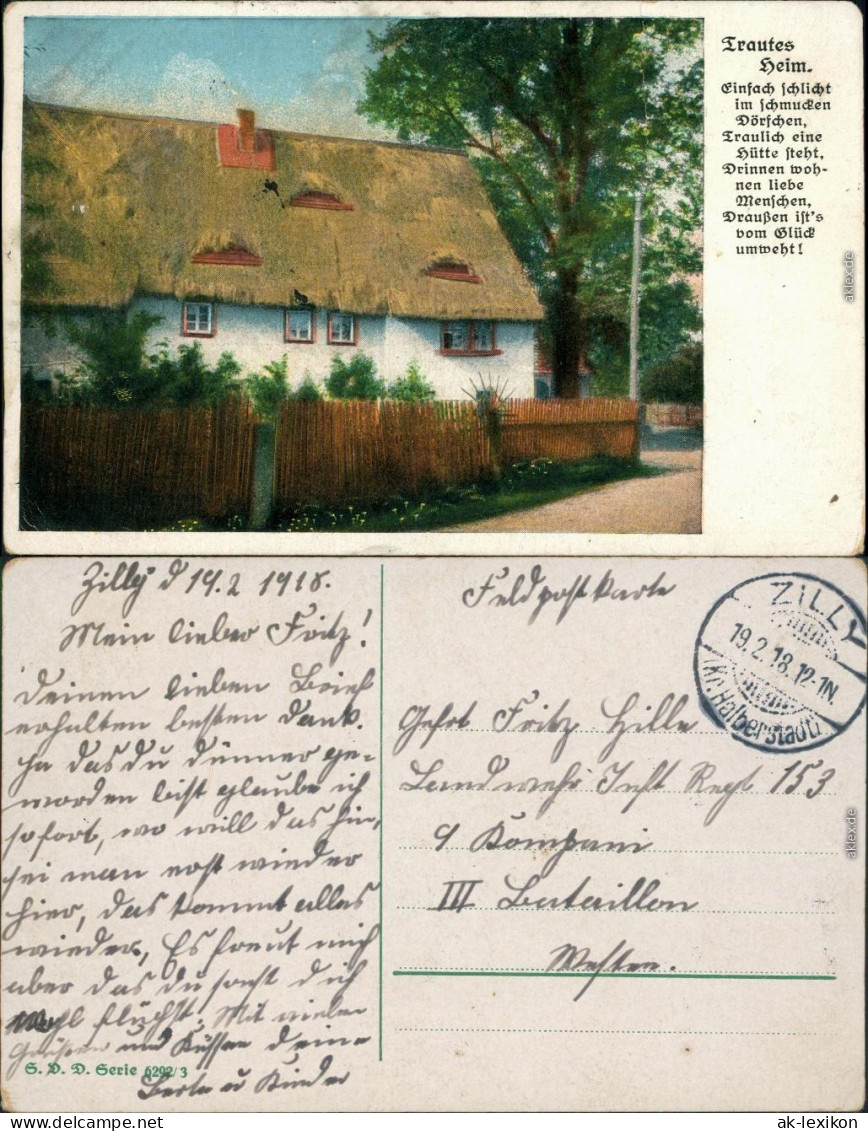 Trautes
Heim.
Einfach schlicht
im schmucken
Dörfchen,
Traulich eine
Hütte steht,
Drinnen woh-
nen liebe
Menschen,
Draußen ist's
vom Glück
umweht!
aklex.de
Zilly d 19.2 1918.
Mein lieber Fritz!
Deinen lieben Brief
erhalten besten Dank.
Ja das du dünner ge-
worden bist glaube ich
sofort, wo will das hin,
sei man erst wieder
hier, das kommt alles
wieder, Es freut mich
aber das du sonst dich
wohl fühlst. Mit vielen
Grüßen und Küssen deine
S. D. D. Serie 6202/3
u Kinder
Feldpostkarte
ZILLY
19.2.18.12-1N.
(Kr. Halberstadt)
Gefrt Fritz Hille
Landwehr Inft Regt 153
9 Kompani
III Bataillon
Westen.
aklex.de
ak-lexikon